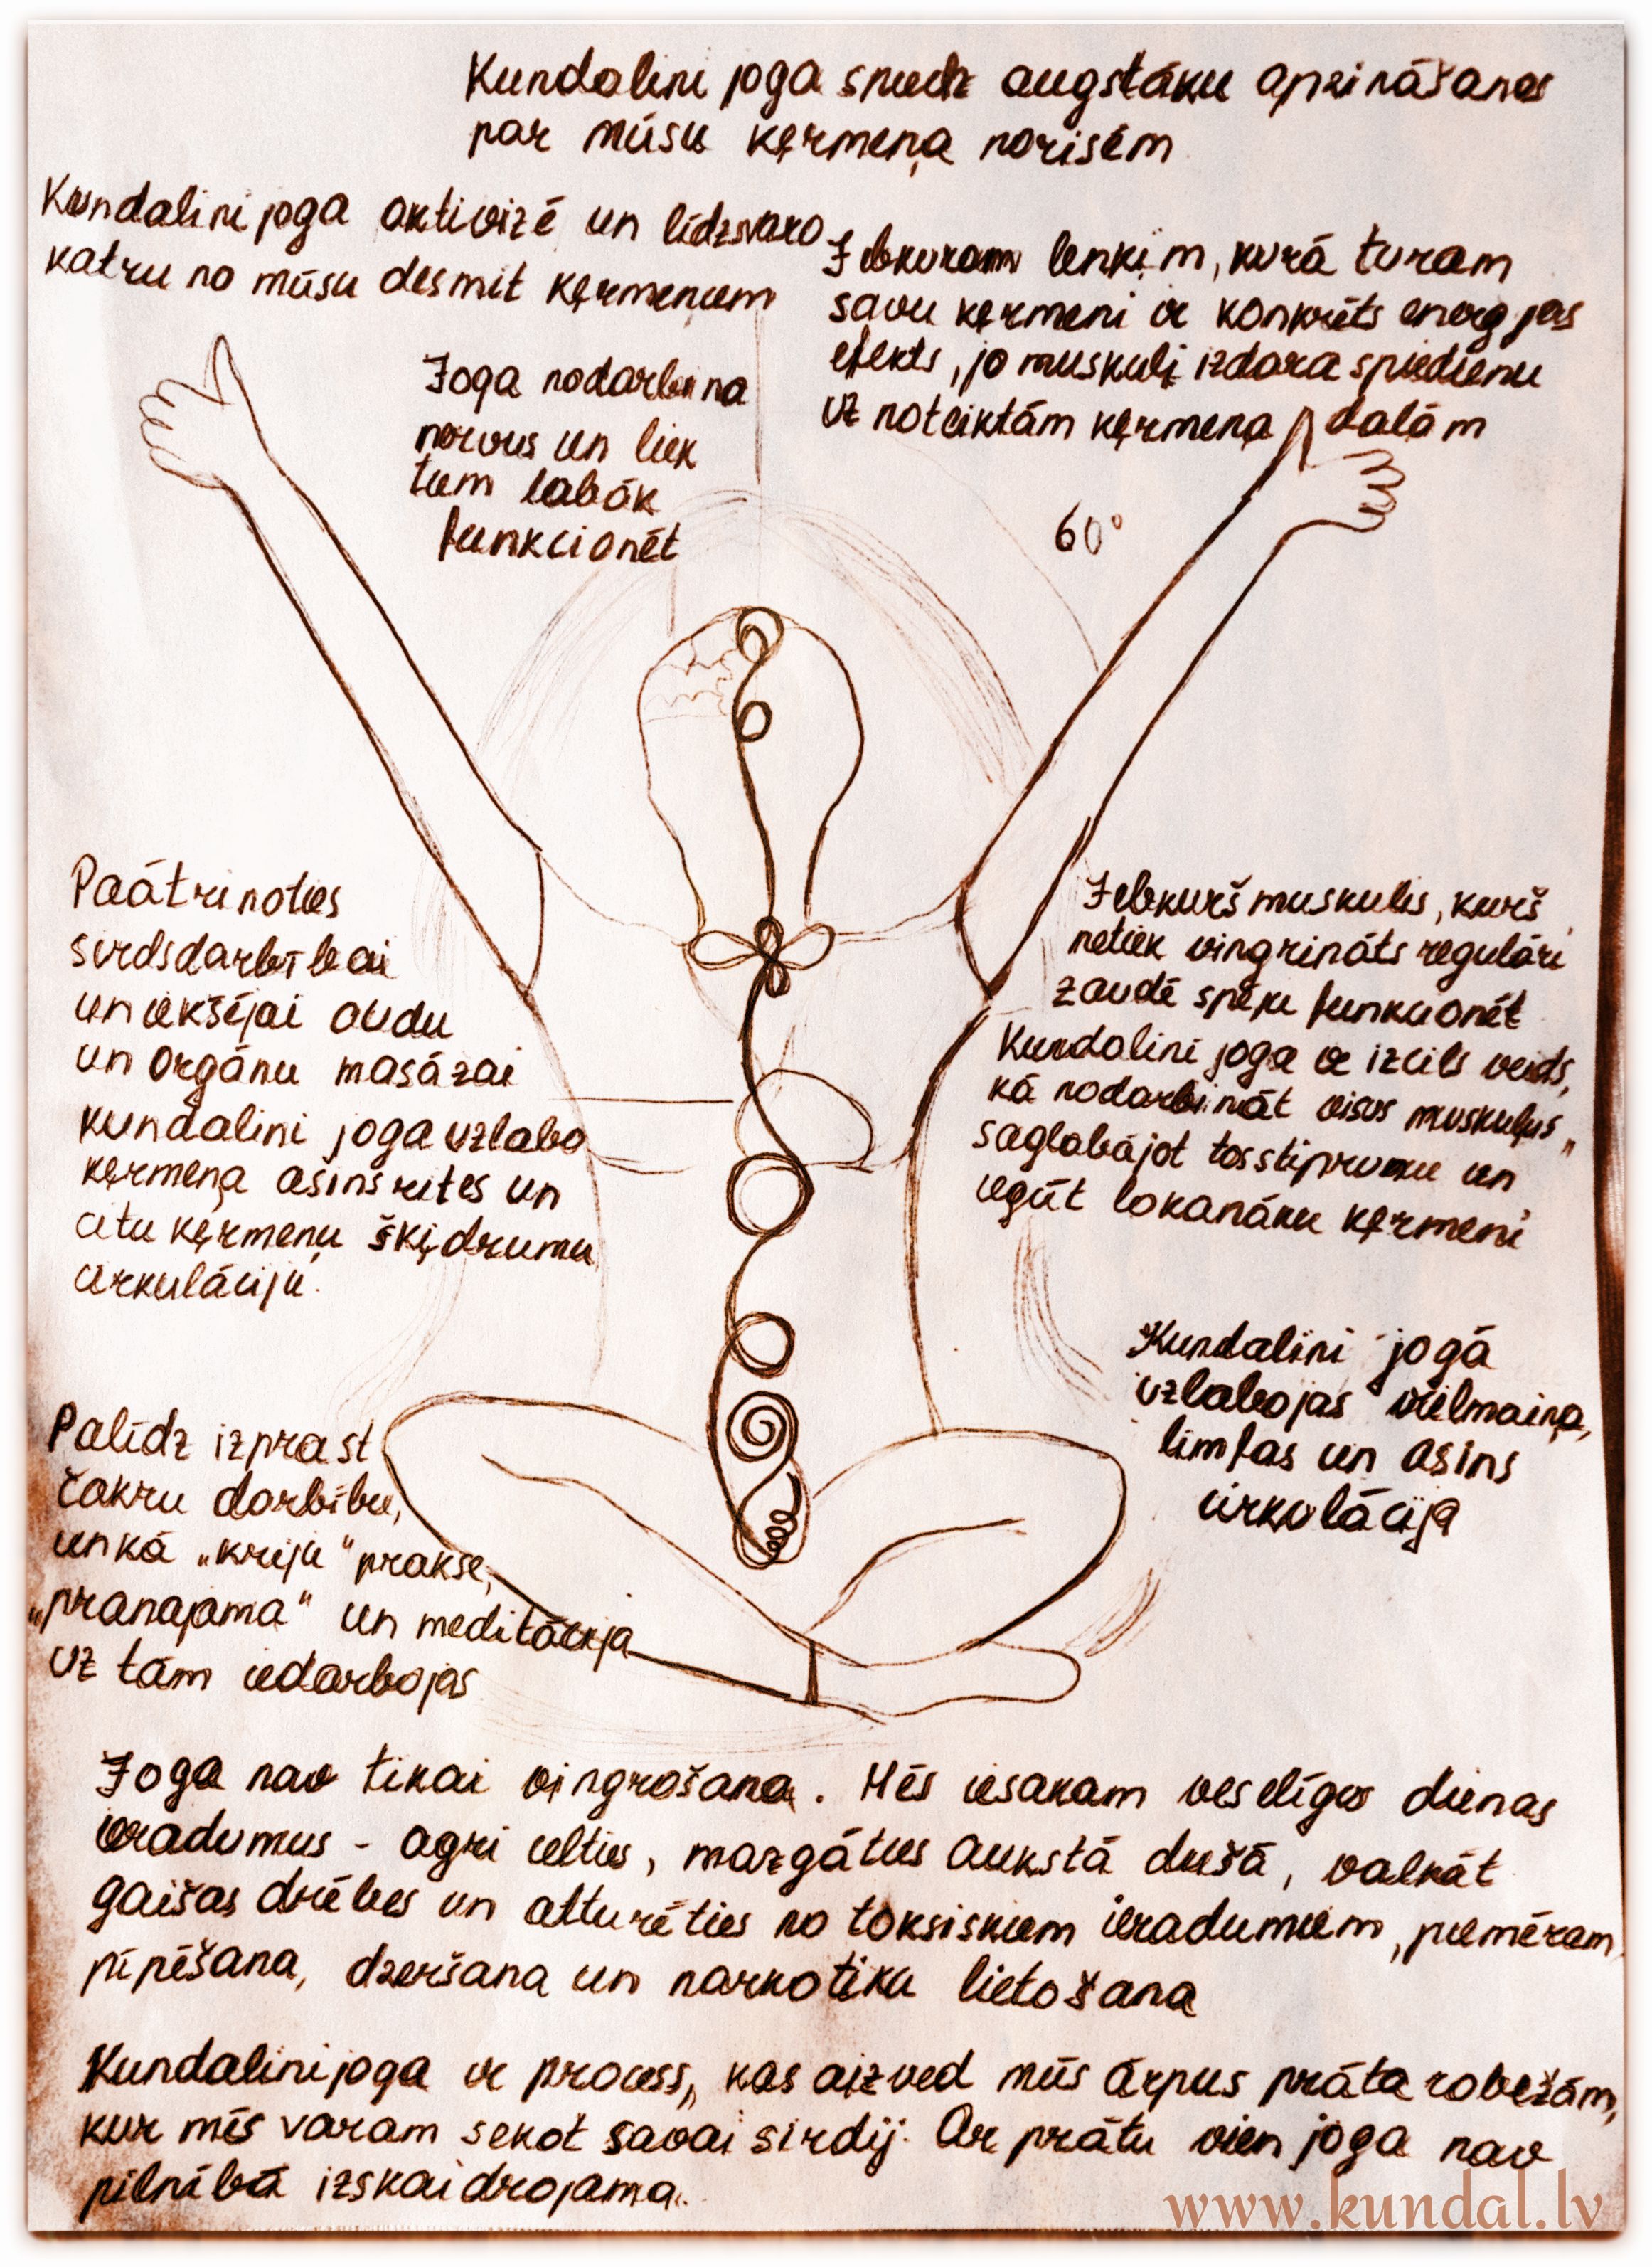 Kundalini joga sniedz augstāku apzināšanos
par mūsu ķermeņa norisēm
Kundalini joga aktivizē un līdzsvaro
katru no mūsu desmit ķermeņiem
Jebkuram leņķim, kurā turam
savu ķermeni ir konkrēts energijas
efekts, jo muskuļi izdara spiedienu
uz noteiktām ķermeņa daļām
Joga nodarbina
nervus un liek
tiem labāk
funkcionēt
60°
Paātrinoties
sirdsdarbībai
un iekšējai audu
un orgānu masāžai
kundalini joga uzlabo
ķermeņa asinsrites un
citu ķermeņu šķidrumu
cirkulāciju.
Jebkurš muskulis, kurš
netiek vingrināts regulāri
zaudē spēju funkcionēt
Kundalini joga ir izcils veids,
kā nodarbināt visus muskuļus,
saglabājot to stiprumu un
iegūt lokanāku ķermeni
Kundalini jogā
uzlabojas vielmaiņa,
limfas un asins
cirkulācija
Palīdz izprast
čakru darbību,
un kā „kriju" prakse,
„pranajama" un meditācija
uz tām iedarbojas
Joga nav tikai vingrošana. Mēs iesakam veselīgos dienas
ieradumus - agri celties, mazgāties aukstā dušā, valkāt
gaišas drēbes un atturēties no toksiskiem ieradumiem, piemēram
pīpēšana, dzeršana un narkotiku lietošana
Kundalini joga ir process, kas aizved mūs ārpus prāta robežām,
kur mēs varam sekot savai sirdij. Ar prātu vien joga nav
pilnībā izskaidrojama.
www.kundal.lv